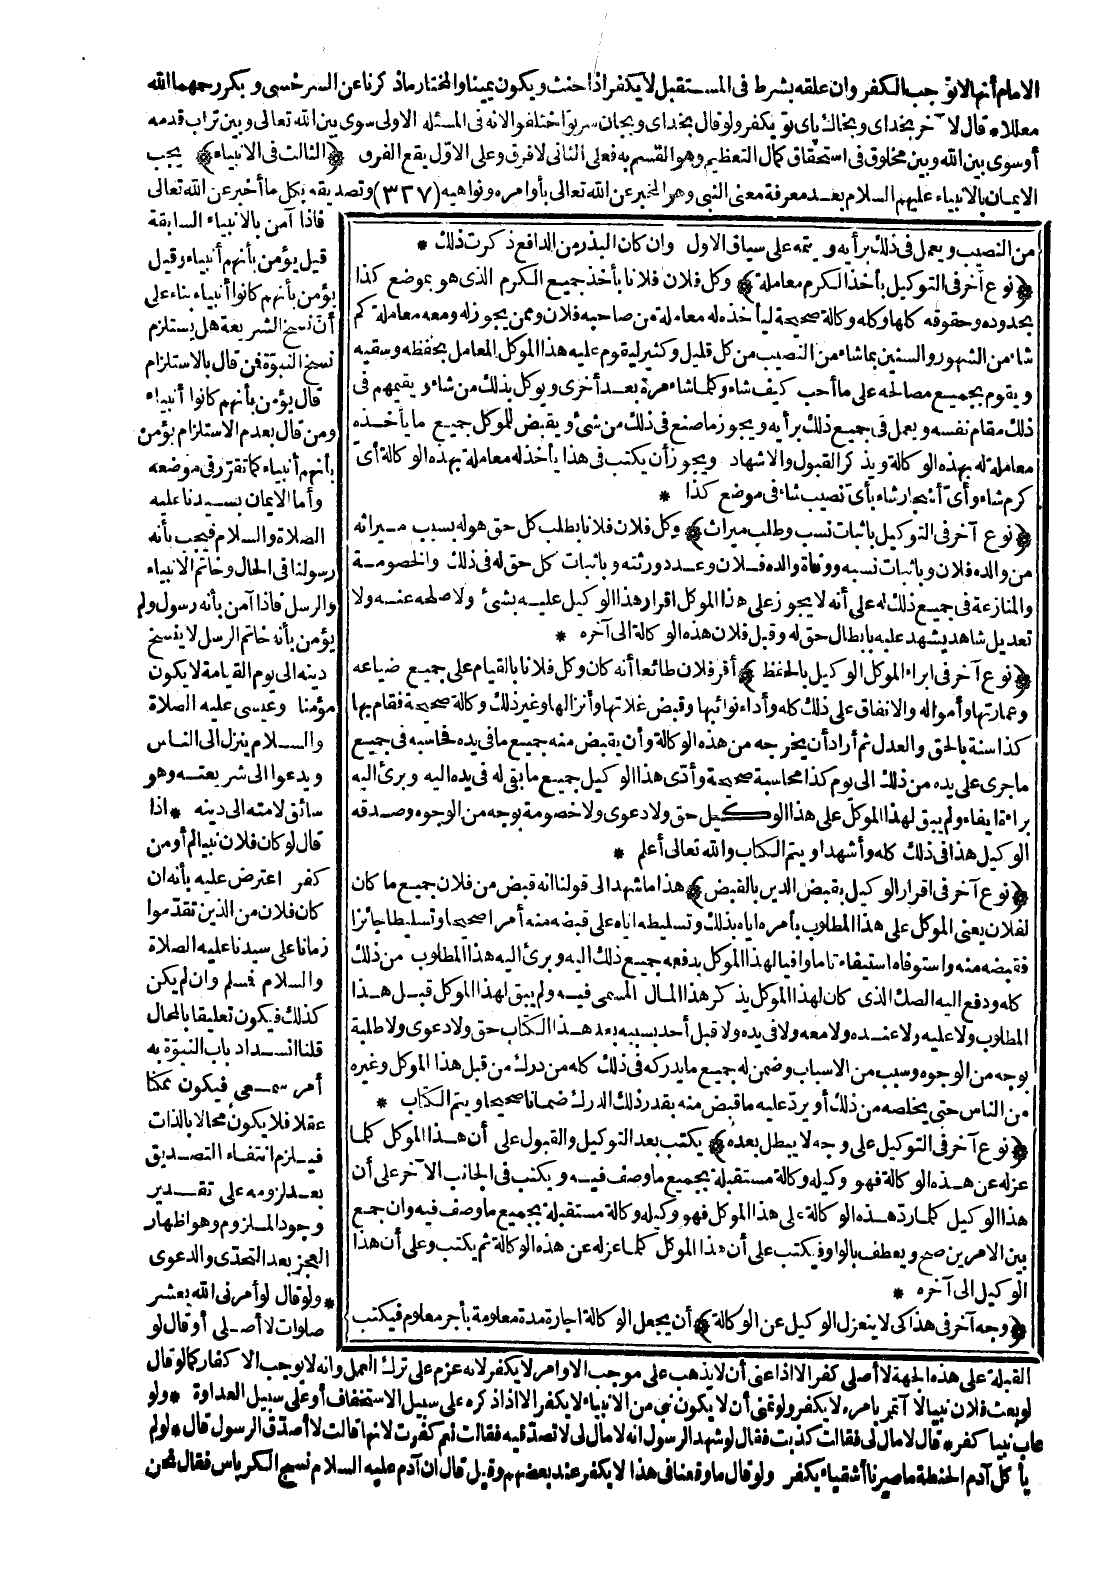 الامام أنها لا توجب الكفر وان علقه بشرط فى المستقبل لا يكفر اذا حنث ويكون يمينا والمختار ماذكرنا عن السرخسى وبكر رحمهما الله
معللا * قال لآخر بخداى وبخاك پاى تو يكفر ولو قال بخداى وبجان سر تو اختلفوا لانه فى المسئلة الاولى سوى بين الله تعالى وبين تراب قدمه
أوسوى بين الله وبين مخلوق فى استحقاق كمال التعظيم وهو القسم به فعلى الثانى لا فرق وعلى الاول يقع الفرق ﴿الثالث فى الانبياء﴾ يجب
الايمان بالانبياء عليهم السلام بعد معرفة معنى النبى وهو المخبر عن الله تعالى بأوامره ونواهيه (٣٢٧) وتصديقه بكل ما أخبر عن الله تعالى
فاذا آمن بالانبياء السابقة
قيل يؤمن بأنهم أنبياء وقيل
يؤمن بأنهم كانوا أنبياء بناء على
أن نسخ الشريعة هل يستلزم
نسخ النبوة فمن قال بالاستلزام
قال يؤمن بأنهم كانوا أنبياء
ومن قال بعدم الاستلزام يؤمن
بأنهم أنبياء كما تقرر فى موضعه
وأما الايمان بسيدنا عليه
الصلاة والسلام فيجب بأنه
رسولنا فى الحال وخاتم الانبياء
والرسل فاذا آمن بأنه رسول ولم
يؤمن بأنه خاتم الرسل لا ينسخ
دينه الى يوم القيامة لا يكون
مؤمنا وعيسى عليه الصلاة
والسلام ينزل الى الناس
ويدعوا الى شريعته وهو
سائق لامته الى دينه * اذا
قال لو كان فلان نبيا لم أومن
كفر اعترض عليه بأنه ان
كان فلان من الذين تقدموا
زمانا على سيدنا عليه الصلاة
والسلام فسلم وان لم يكن
كذلك فيكون تعليقا بالمحال
قلنا انسداد باب النبوة به
أمر سمعى فيكون ممكنا
عقلا فلا يكون محالا بالذات
فيلزم انتفاء التصديق
بعد لزومه على تقدير
وجود الملزوم وهو اظهار
العجز بعد التحدى والدعوى
* ولو قال لو أمرنى الله بعشر
صلوات لا أصلى أو قال لو
من النصيب ويعمل فى ذلك برأيه ويتمه على سياق الاول وان كان البذر من الدافع ذكرت ذلك *
﴿نوع آخر فى التوكيل بأخذ الكرم معاملة﴾ وكل فلان فلانا بأخذ جميع الكرم الذى هو بموضع كذا
بحدوده وحقوقه كلها وكله وكالة صحيحة ليأخذه له معاملة من صاحبه فلان وممن يجوز له ومعه معاملة كم
شاء من الشهور والسنين بما شاء من النصيب من كل قليل وكثير ليقوم عليه هذا الموكل المعامل بحفظه وسقيه
ويقوم بجميع مصالحه على ما أحب كيف شاء وكلما شاء مرة بعد أخرى ويوكل بذلك من شاء ويقيمهم فى
ذلك مقام نفسه ويعمل فى جميع ذلك برأيه ويجوز ما صنع فى ذلك من شئ ويقبض للموكل جميع ما يأخذه
معاملة له بهذه الوكالة ويذكر القبول والاشهاد ويجوز أن يكتب فى هذا يأخذ له معاملة بهذه الوكالة أى
كرم شاء وأى أشجار شاء بأى نصيب شاء فى موضع كذا *
﴿نوع آخر فى التوكيل باثبات نسب وطلب ميراث﴾ وكل فلان فلانا بطلب كل حق هو له بسبب ميراثه
من والده فلان وباثبات نسبه ووفاة والده فلان وعدد ورثته وباثبات كل حق له فى ذلك والخصومة
والمنازعة فى جميع ذلك له على أنه لا يجوز على هذا الموكل اقرار هذا الوكيل عليه بشئ ولا صلحه عنه ولا
تعديل شاهد يشهد عليه بابطال حق له وقبل فلان هذه الوكالة الى آخره *
﴿نوع آخر فى ابراء الموكل الوكيل بالحفظ﴾ أقر فلان طائعا أنه كان وكل فلانا بالقيام على جميع ضياعه
وعمارتها وأمواله والانفاق على ذلك كله وأداء نوائبها وقبض غلاتها وأنزالها وغير ذلك وكالة صحيحة فقام بها
كذا سنة بالحق والعدل ثم أراد أن يخرجه من هذه الوكالة وأن يقبض منه جميع ما فى يده فحاسبه فى جميع
ما جرى على يده من ذلك الى يوم كذا محاسبة صحيحة وأدى هذا الوكيل جميع ما بقى له فى يده اليه وبرئ اليه
براءة ايفاء ولم يبق لهذا الموكل على هذا الوكيل حق ولا دعوى ولا خصومة بوجه من الوجوه وصدقه
الوكيل هذا فى ذلك كله وأشهدا ويتم الكتاب والله تعالى أعلم *
﴿نوع آخر فى اقرار الوكيل بقبض الدين بالقبض﴾ هذا ما شهد الى قولنا انه قبض من فلان جميع ما كان
لفلان يعنى الموكل على هذا المطلوب بأمره اياه بذلك وتسليطه اياه على قبضه منه أمرا صحيحا وتسليطا جائزا
فقبضه منه واستوفاه استيفاء تاما وافيا لهذا الموكل بدفعه جميع ذلك اليه وبرئ اليه هذا المطلوب من ذلك
كله ودفع اليه الصك الذى كان لهذا الموكل بذكر هذا المال المسمى فيه ولم يبق لهذا الموكل قبل هذا
المطلوب ولا عليه ولا عنده ولا معه ولا فى يده ولا قبل أحد بسببه بعد هذا الكتاب حق ولا دعوى ولا طلبة
بوجه من الوجوه وسبب من الاسباب وضمن له جميع ما يدركه فى ذلك كله من درك من قبل هذا الموكل وغيره
من الناس حتى يخلصه من ذلك أو يرد عليه ما قبض منه بقدر ذلك الدرك ضمانا صحيحا ويتم الكتاب *
﴿نوع آخر فى التوكيل على وجه لا يبطل بعده﴾ يكتب بعد التوكيل والقبول على أن هذا الموكل كلما
عزله عن هذه الوكالة فهو وكيله وكالة مستقبلة بجميع ما وصف فيه ويكتب فى الجانب الآخر على أن
هذا الوكيل كلما رد هذه الوكالة على هذا الموكل فهو وكيله وكالة مستقبلة بجميع ما وصف فيه وان جمع
بين الامرين صح ويعطف بالواو فيكتب على أن هذا الموكل كلما عزله عن هذه الوكالة ثم يكتب وعلى أن هذا
الوكيل الى آخره *
﴿وجه آخر فى هذا كى لا ينعزل الوكيل عن الوكالة﴾ أن يجعل الوكالة اجارة مدة معلومة بأجر معلوم فيكتب
القبلة على هذه الجهة لا أصلى كفر الا اذا عنى أن لا يذهب على موجب الاوامر لا يكفر لانه عزم على ترك العمل وانه لا يوجب الا كفار كما لو قال
لو بعث فلان نبيا لا آتمر بامره لا يكفر ولو تمنى أن لا يكون نبى من الانبياء لا يكفر الا اذا ذكره على سبيل الاستخفاف أو على سبيل العداوة * ولو
عاب نبيا كفر * قال لا مال لى فقالت كذبت فقال لو شهد الرسول انه لا مال لى لا تصدقيه فقالت نعم كفرت لانها قالت لا أصدق الرسول قال * لو لم
يأكل آدم الحنطة ما صرنا أشقياء يكفر ولو قال ما وقعنا فى هذا لا يكفر عند بعضهم وقيل قال ان آدم عليه السلام نسج الكرباس فقال نحن